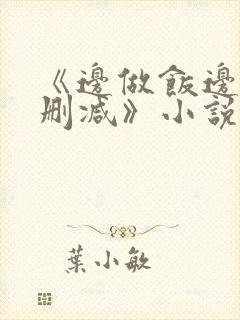 《邊做飯邊
删减》小說
葉小敏